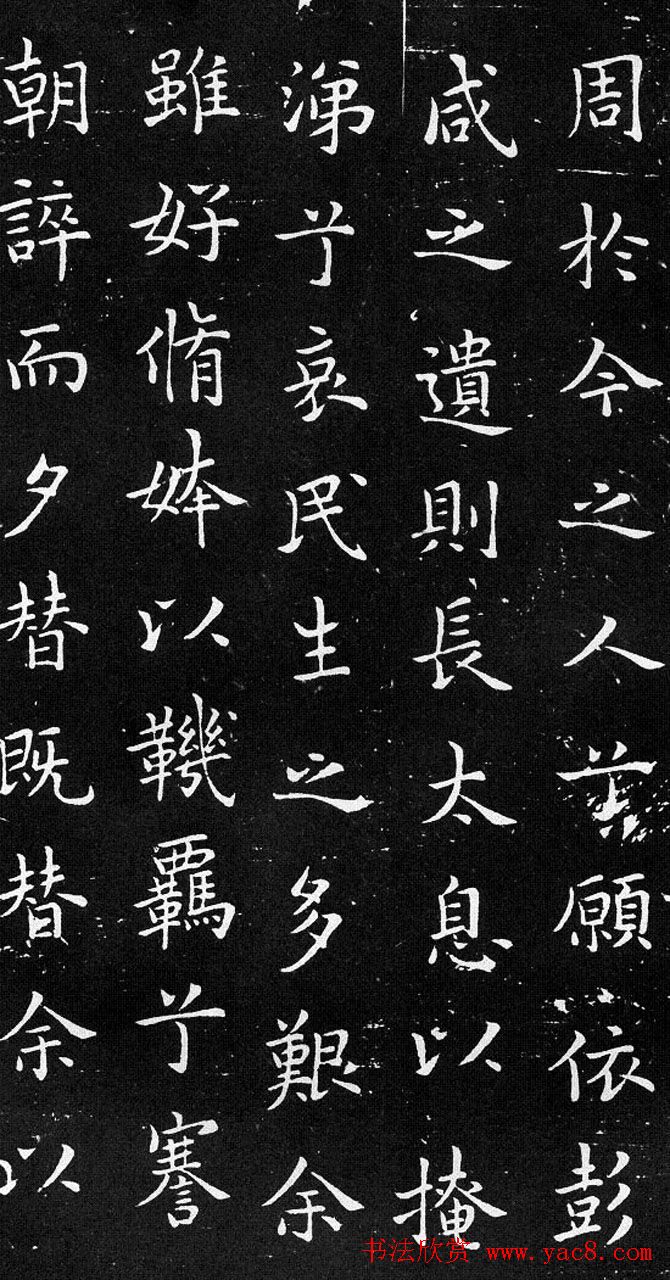 周於今之人兮願依彭
咸之遺則長太息以掩
涕兮哀民生之多艱余
雖好脩姱以鞿羈兮謇
朝誶而夕替既替余以
书法欣赏 www.yac8.com